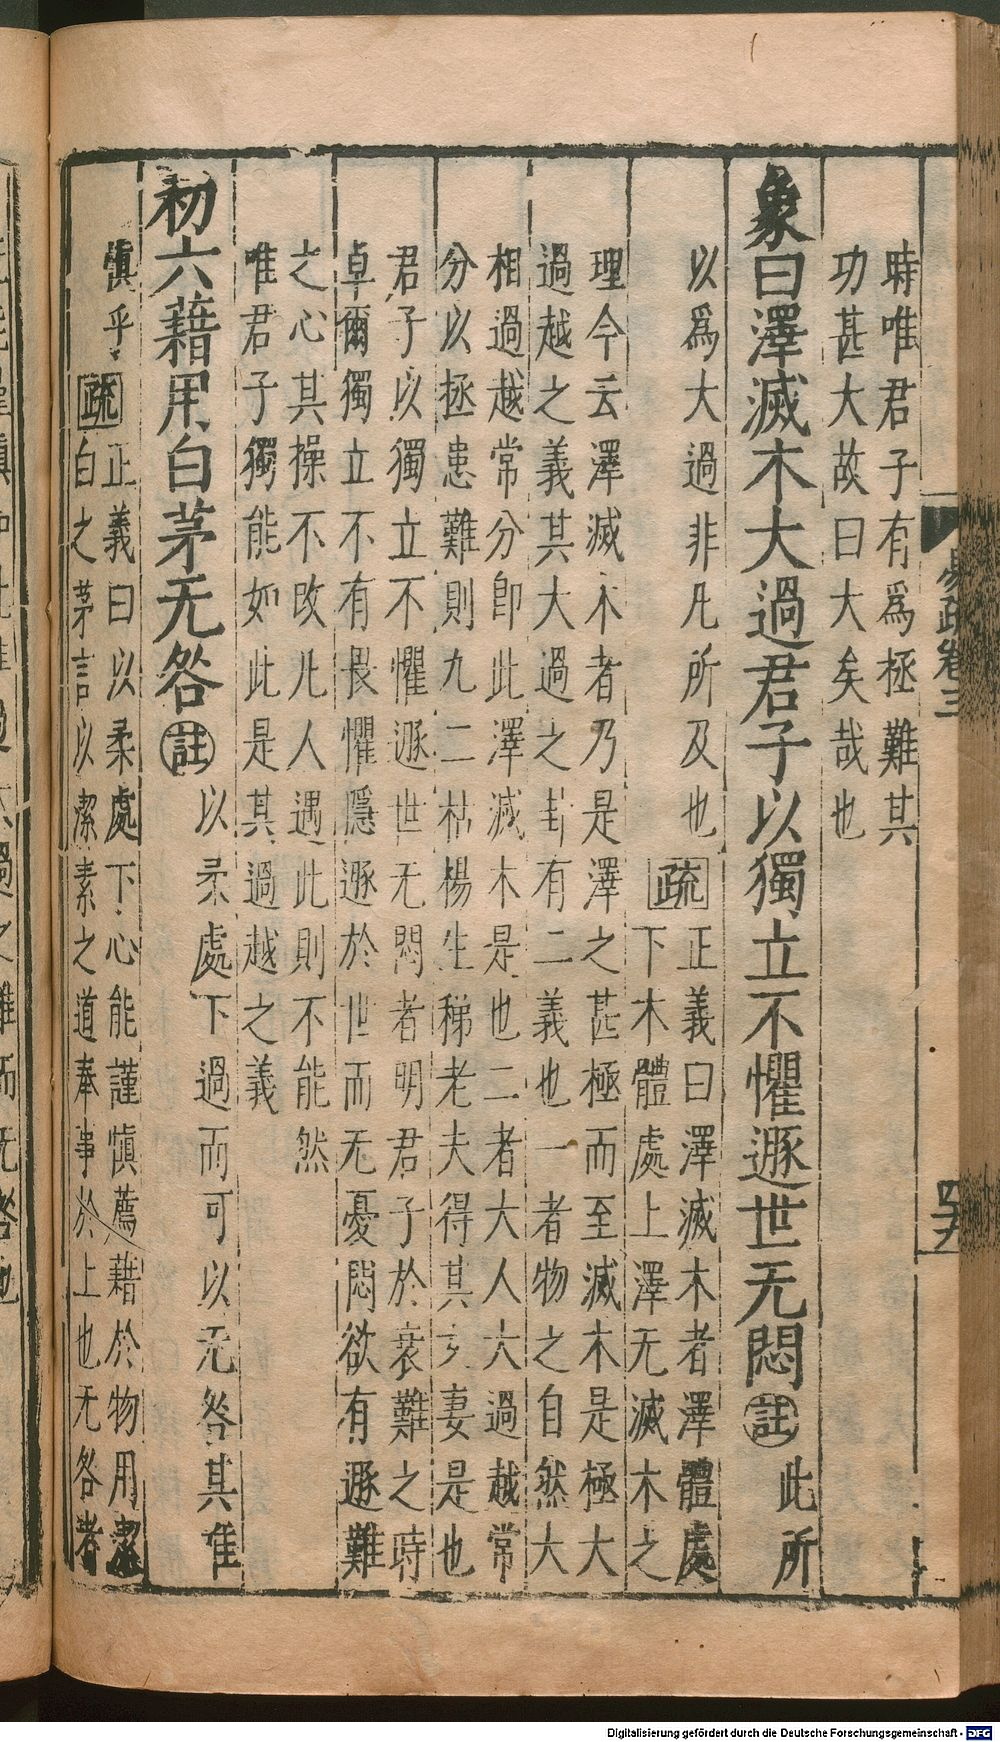 時唯君子有爲極難其
功甚大故曰大矣哉也
象曰澤滅木大過君子以獨立不懼遯世无悶註此所
以爲大過非凡所及也疏正義曰澤滅木者澤體處
下木體處上澤无滅木之
理今云澤滅木者乃是澤之甚極而至滅木是極大
過越之義其大過之卦有二義也一者物之自然大
相過越常分卽此澤滅木是也二者大人大過越常
分以拯患難則九二枯楊生稊老夫得其女妻是也
君子以獨立不懼遯世无悶者明君子於衰難之時
卓爾獨立不有畏懼隱遯於世而无憂悶欲有遯難
之心其操不改凡人遇此則不能然
唯君子獨能如此是其過越之義
初六藉用白茅无咎註以柔處下過而可以无咎其唯
慎乎疏正義曰以柔處下心能謹慎薦藉於物用潔
白之茅言以潔素之道奉事於上也无咎者
易疏卷三
四十九
Digitalisierung gefördert durch die Deutsche Forschungsgemeinschaft - DFG